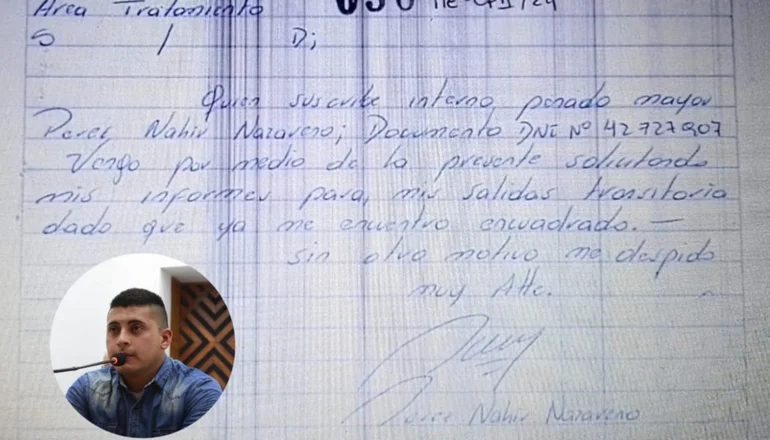 Area Tratamiento
S / D;
Quien suscribe interno, penado mayor
Perez Nahir Nazareno; Documento DNI Nº 42727907
Vengo por medio de la presente solicitando
mis informes para, mis salidas transitoria
dado que ya me encuentro encuadrado. —
sin otro motivo me despido
muy Atte.
Perez Nahir Nazareno